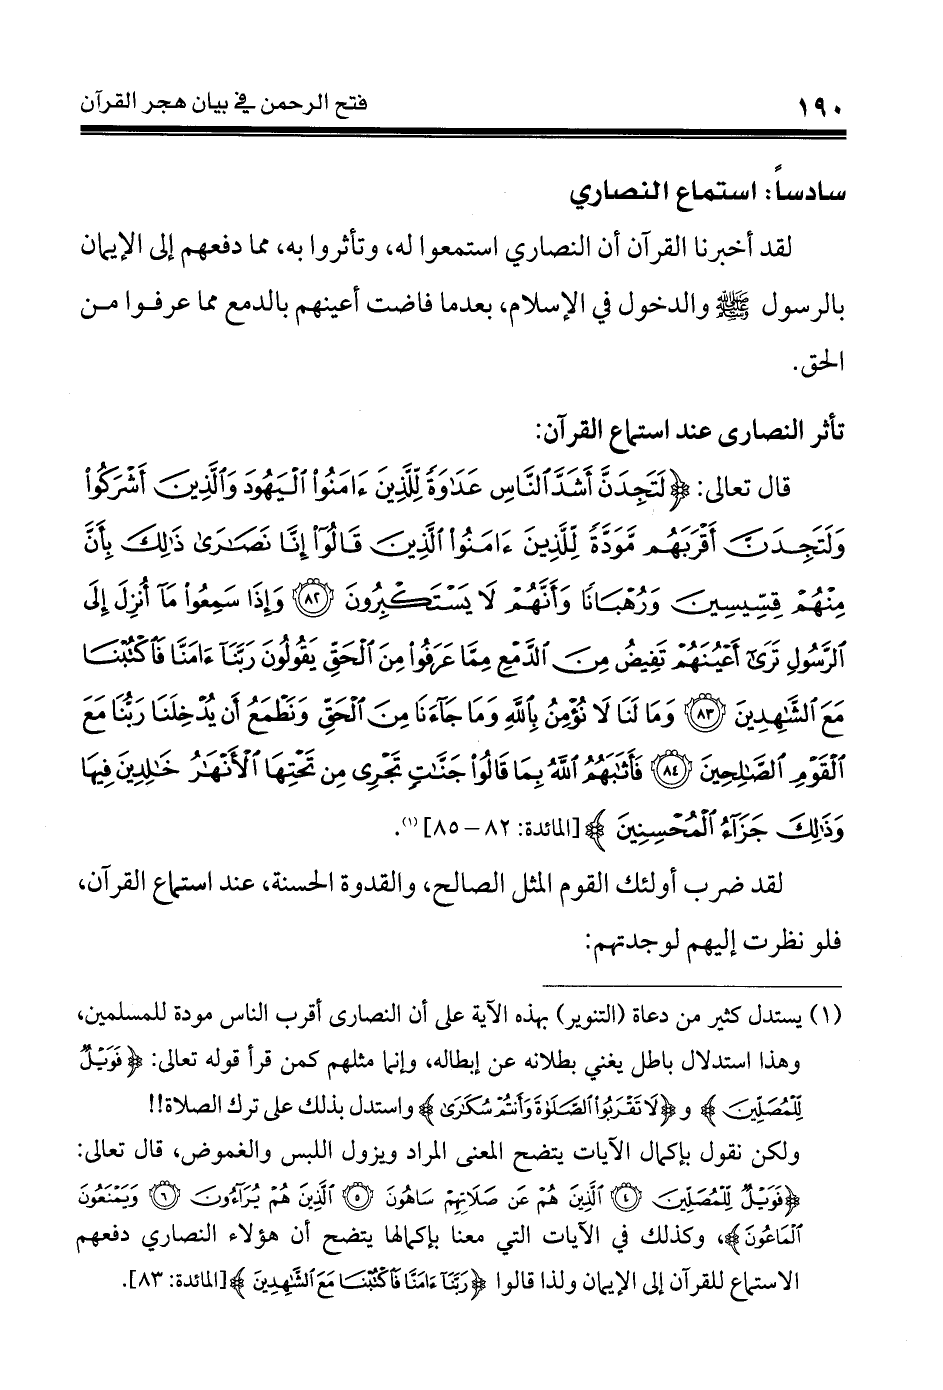 ١٩٠ فتح الرحمن في بيان هجر القرآن
سادساً: استماع النصاري
لقد أخبرنا القرآن أن النصاري استمعوا له، وتأثروا به، مما دفعهم إلى الإيمان
بالرسول ﷺ والدخول في الإسلام، بعدما فاضت أعينهم بالدمع مما عرفوا من
الحق.
تأثر النصارى عند استماع القرآن:
قال تعالى: ﴿لَتَجِدَنَّ أَشَدَّ ٱلنَّاسِ عَدَٰوَةً لِّلَّذِينَ ءَامَنُوا۟ ٱلْيَهُودَ وَٱلَّذِينَ أَشْرَكُوا۟
وَلَتَجِدَنَّ أَقْرَبَهُم مَّوَدَّةً لِّلَّذِينَ ءَامَنُوا۟ ٱلَّذِينَ قَالُوٓا۟ إِنَّا نَصَٰرَىٰ ذَٰلِكَ بِأَنَّ
مِنْهُمْ قِسِّيسِينَ وَرُهْبَانًا وَأَنَّهُمْ لَا يَسْتَكْبِرُونَ ٨٢ وَإِذَا سَمِعُوا۟ مَآ أُنزِلَ إِلَى
ٱلرَّسُولِ تَرَىٰٓ أَعْيُنَهُمْ تَفِيضُ مِنَ ٱلدَّمْعِ مِمَّا عَرَفُوا۟ مِنَ ٱلْحَقِّ يَقُولُونَ رَبَّنَآ ءَامَنَّا فَٱكْتُبْنَا
مَعَ ٱلشَّٰهِدِينَ ٨٣ وَمَا لَنَا لَا نُؤْمِنُ بِٱللَّهِ وَمَا جَآءَنَا مِنَ ٱلْحَقِّ وَنَطْمَعُ أَن يُدْخِلَنَا رَبُّنَا مَعَ
ٱلْقَوْمِ ٱلصَّٰلِحِينَ ٨٤ فَأَثَٰبَهُمُ ٱللَّهُ بِمَا قَالُوا۟ جَنَّٰتٍ تَجْرِى مِن تَحْتِهَا ٱلْأَنْهَٰرُ خَٰلِدِينَ فِيهَا
وَذَٰلِكَ جَزَآءُ ٱلْمُحْسِنِينَ﴾ [المائدة: ٨٢ – ٨٥] (١).
لقد ضرب أولئك القوم المثل الصالح، والقدوة الحسنة، عند استماع القرآن،
فلو نظرت إليهم لوجدتهم:
(١) يستدل كثير من دعاة (التنوير) بهذه الآية على أن النصارى أقرب الناس مودة للمسلمين،
وهذا استدلال باطل يغني بطلانه عن إبطاله، وإنما مثلهم كمن قرأ قوله تعالى: ﴿فَوَيْلٌ
لِّلْمُصَلِّينَ﴾ و ﴿لَا تَقْرَبُوا۟ ٱلصَّلَوٰةَ وَأَنتُمْ سُكَٰرَىٰ﴾ واستدل بذلك على ترك الصلاة!!
ولكن نقول بإكمال الآيات يتضح المعنى المراد ويزول اللبس والغموض، قال تعالى:
﴿فَوَيْلٌ لِّلْمُصَلِّينَ ٤ ٱلَّذِينَ هُمْ عَن صَلَاتِهِمْ سَاهُونَ ٥ ٱلَّذِينَ هُمْ يُرَآءُونَ ٦ وَيَمْنَعُونَ
ٱلْمَاعُونَ﴾، وكذلك في الآيات التي معنا بإكمالها يتضح أن هؤلاء النصاري دفعهم
الاستماع للقرآن إلى الإيمان ولذا قالوا ﴿رَبَّنَآ ءَامَنَّا فَٱكْتُبْنَا مَعَ ٱلشَّٰهِدِينَ﴾ [المائدة: ٨٣].